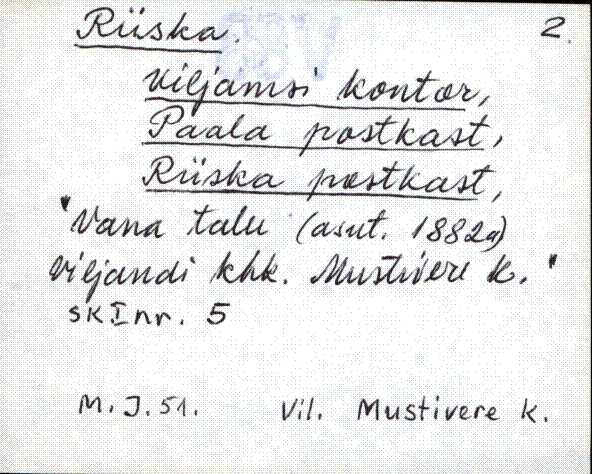 Rüska. 2.
Viljamsi kontor,
Paala postkast,
Rüska postkast,
"Vana talu (asut. 1882a)
Viljandi khk. Mustivere k."
SKI nr. 5
M.J.51. Vil. Mustivere k.